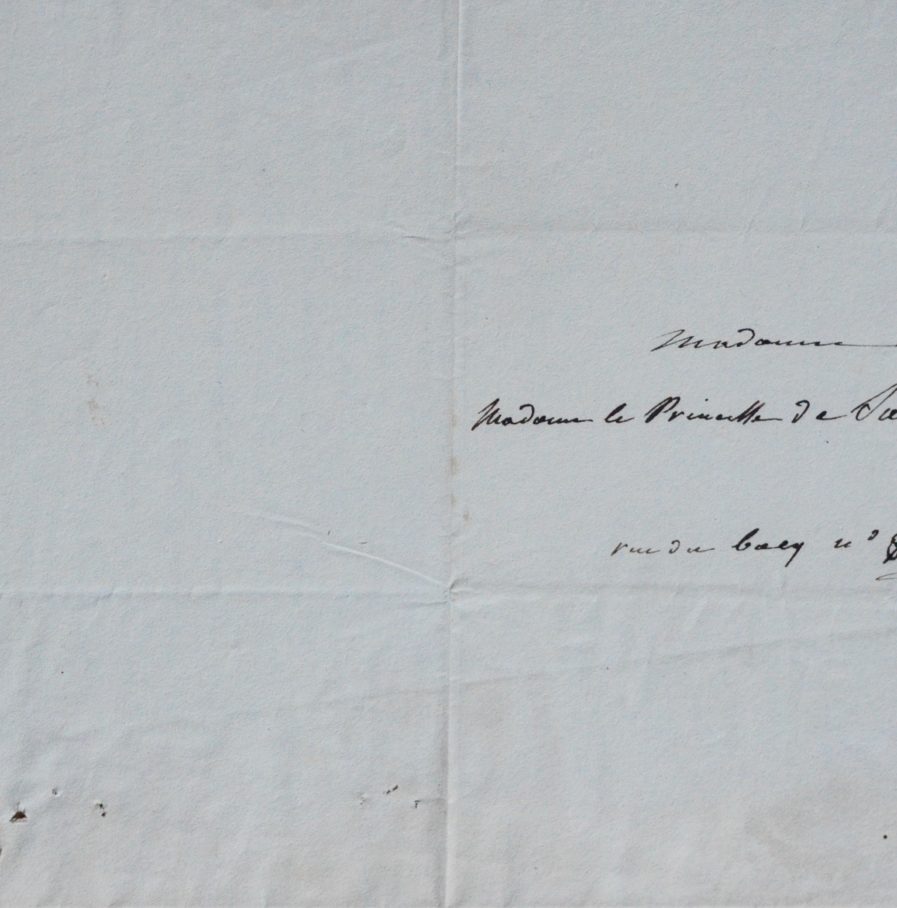 Madame
Madame la Princesse de
rue du bacq n°